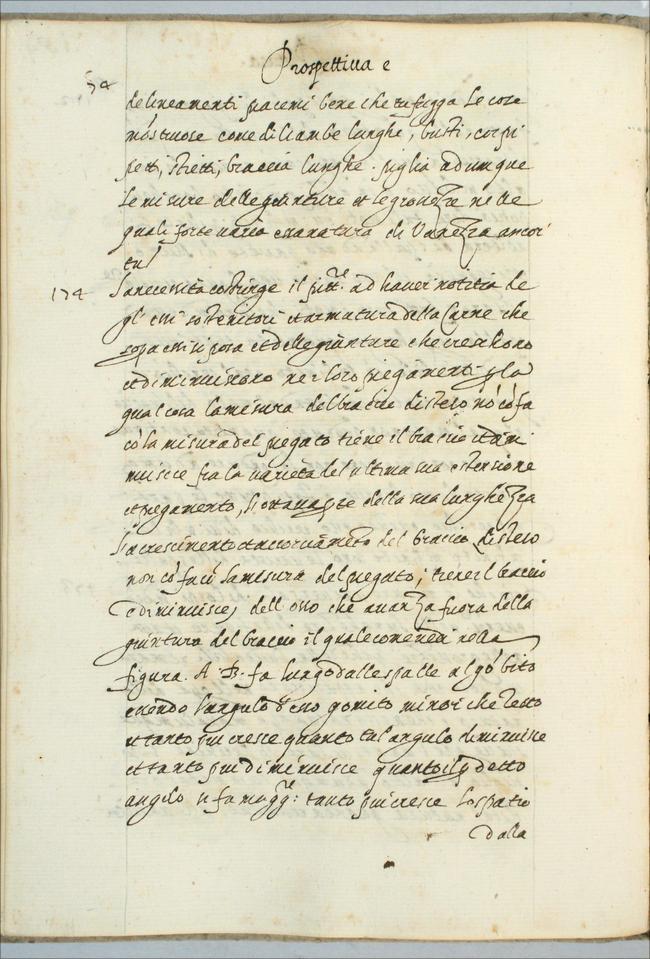 Prospettiua e
54
delineamenti piacemi bene che tu fugga le cose
mostruose come di Gambe lunghe, busti, corpi
petti, stretti, braccia lunghe. piglia adunque
le misure delle giunture et le grossezze nelle
quali forte uaria essa natura di
tu
174 La necessita costringe il pitt.re ad hauer notitia de
gl' ossi sostenitori et armatura della Carne che
sopra essi si posa et delle giunture che creschono
et diminuiscono ne i loro piegamenti p la
qual cosa la misura del braccio disteso no co fa
co la misura del piegato
minuisce fra la uarieta del ultima sua estensione
et piegamento, l'ottaua pte della sua lunghezza
L'acrescimento et accortiameto del braccio disteso
non co fa la misura del piegato;
e diminuisce, dell osso che auanza fuora della
giuntura del braccio il quale come uedi nella
figura. A. B. fa lungo dalle spalle al gobito
essendo l'angulo d esso gomito minor che retto
et tanto piu cresce quanto tal angulo diminuisce
et tanto piu diminuisce quanto il p detto
angolo si fa magg.re: tanto piu cresce lo spatio
dalla